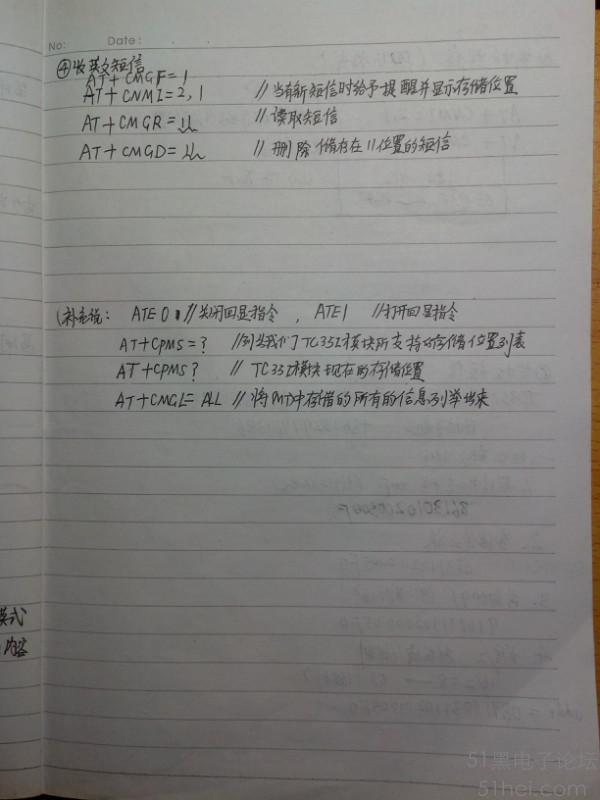 No:
Date:
④收英文短信
AT+CMGF=1
AT+CNMI=2,1 //当有新短信时给予提醒并显示存储位置
AT+CMGR=11 //读取短信
AT+CMGD=11 //删除储存在11位置的短信
(补充说: ATE0 //关闭回显指令, ATE1 //打开回显指令
AT+CPMS=? //列出我们TC35I模块所支持的存储位置列表
AT+CPMS? //TC35I模块现在的存储位置
AT+CMGL=ALL //将MT中存储的所有的信息列举出来
模式
内容
51黑电子论坛
51hei.com